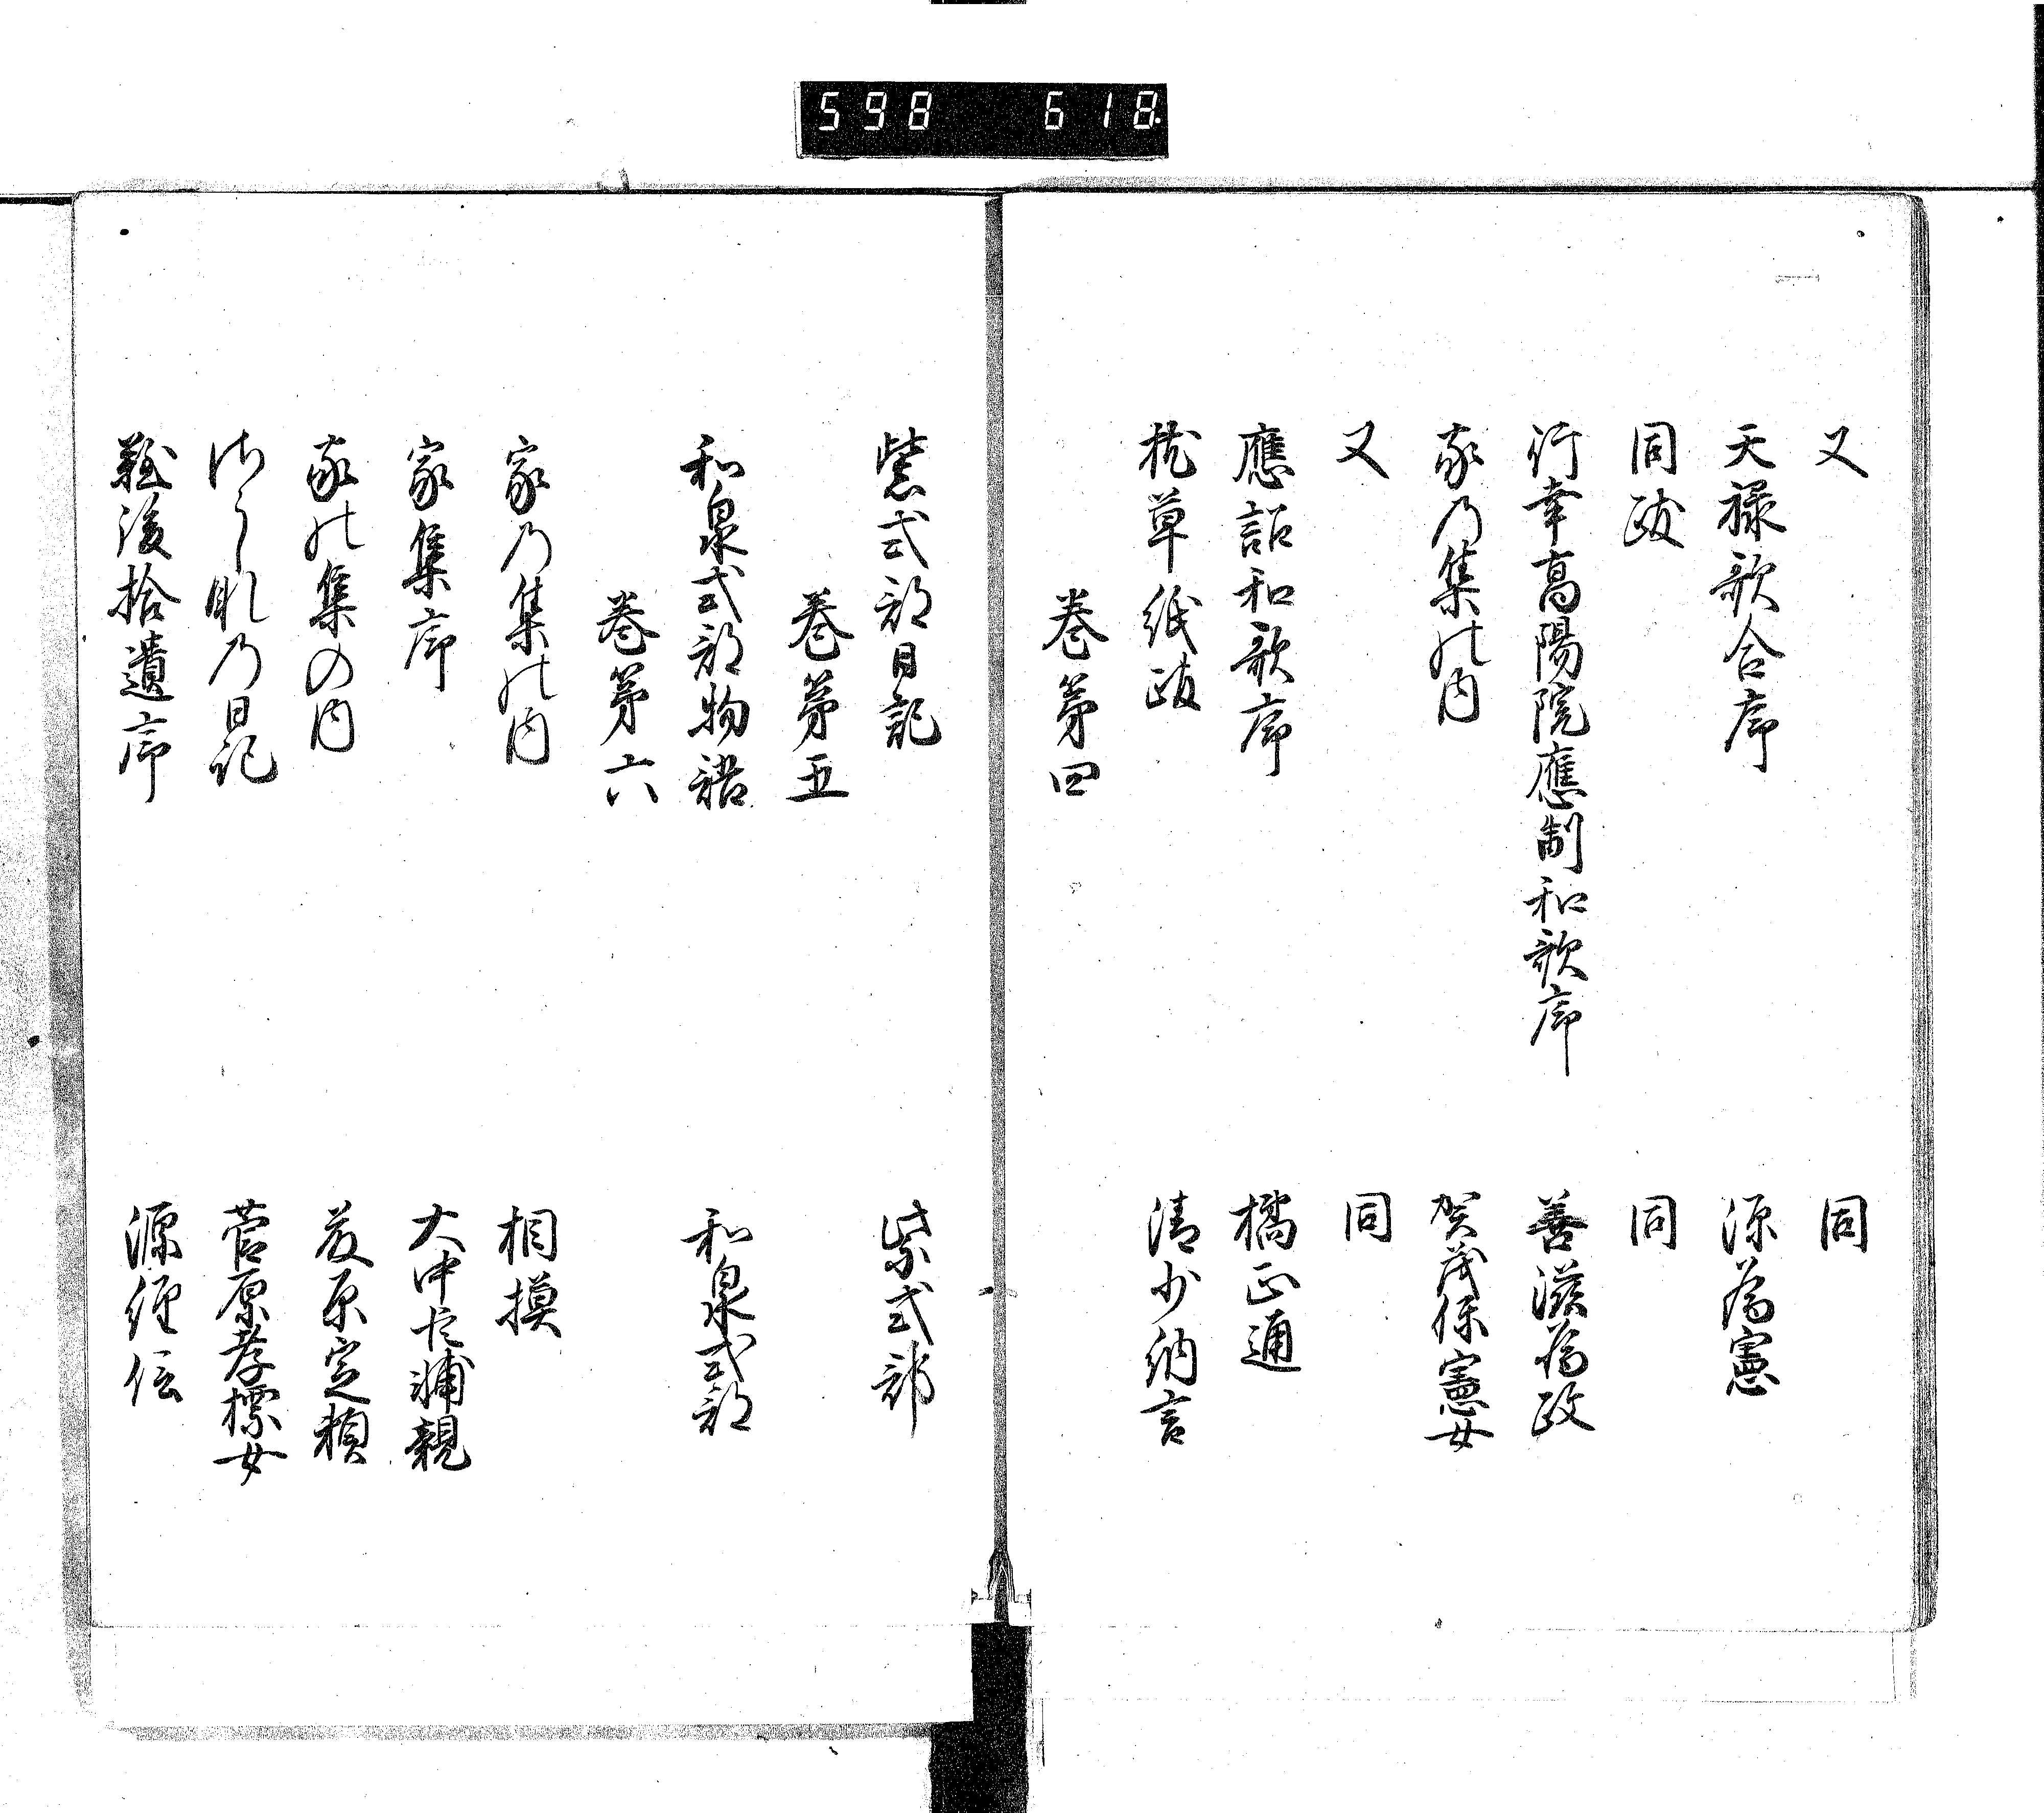 598 618
又 同
天禄歌合序 源為憲
同跋 同
行幸高陽院應制和歌序 善滋為政
家乃集の内 賀茂保憲女
又 同
應詔和歌序 橘正通
枕草紙跋 清少納言
巻第四
紫式部日記 紫式部
巻第五
和泉式部物語 和泉式部
巻第六
家乃集の内 相摸
家集序 大中臣輔親
家の集の内 藤原定頼
さらしな乃日記 菅原孝標女
難後拾遺序 源經信